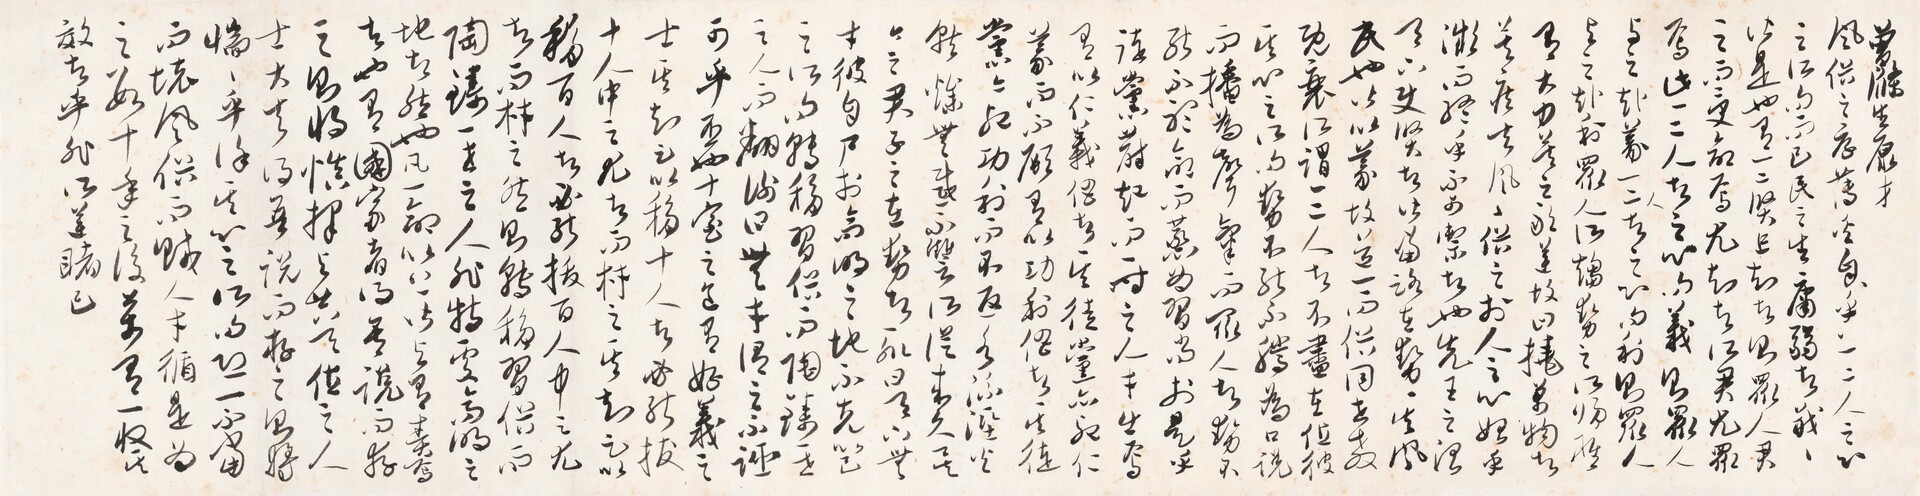 曾滌生原才
風俗之厚薄奚自乎一二人之心
之所向而已民之生庸弱者戢戢
皆是也有一二賢且智者則眾人君
之而受命焉尤智者所君尤眾
焉此一二人者之心向義則眾人
與之赴義一二人者之心向利則眾人
與之赴利眾人所趨勢之所歸雖
有大力莫之敢逆故曰撓萬物者
莫疾乎風風俗之於人之心始乎
微而終乎不可禦者也先王之治
天下使賢者皆當路在勢其風
民也皆以義故道一而俗同世教
既衰所謂一二人者不盡在位彼
其心之所向勢不能不騰為口說
而播為聲氣而眾人者勢不
能不聽命而蒸為習尚於是乎
徒黨蔚起而一時之人才生焉
有以仁義倡者其徒黨亦死仁
義而不顧有以功利倡者其徒
黨亦死功利而不返水流濕火
就燥無感不讎所從來久矣
今之君子之在勢者輒曰天下無
才彼自尸於高明之地不克以己
之所向轉移習俗而陶鑄一世
之人而翻謝曰無才謂之不誣
可乎否也十室之邑有好義之
士其智足以移十人者必能拔
十人中之尤者而材之其智足以
移百人者必能拔百人中之尤
者而材之然則轉移習俗而
陶鑄一世之人非特處高明之
地者然也凡一命以上皆與有責焉
者也有國家者得吾說而存
之則將慎擇與共天位之人
士大夫得吾說而存之則將
惴惴乎謹其心之所向恐一不當
而壞風俗而賊人才循是為
之數十年之後萬有一收其
效者乎非所逆睹已